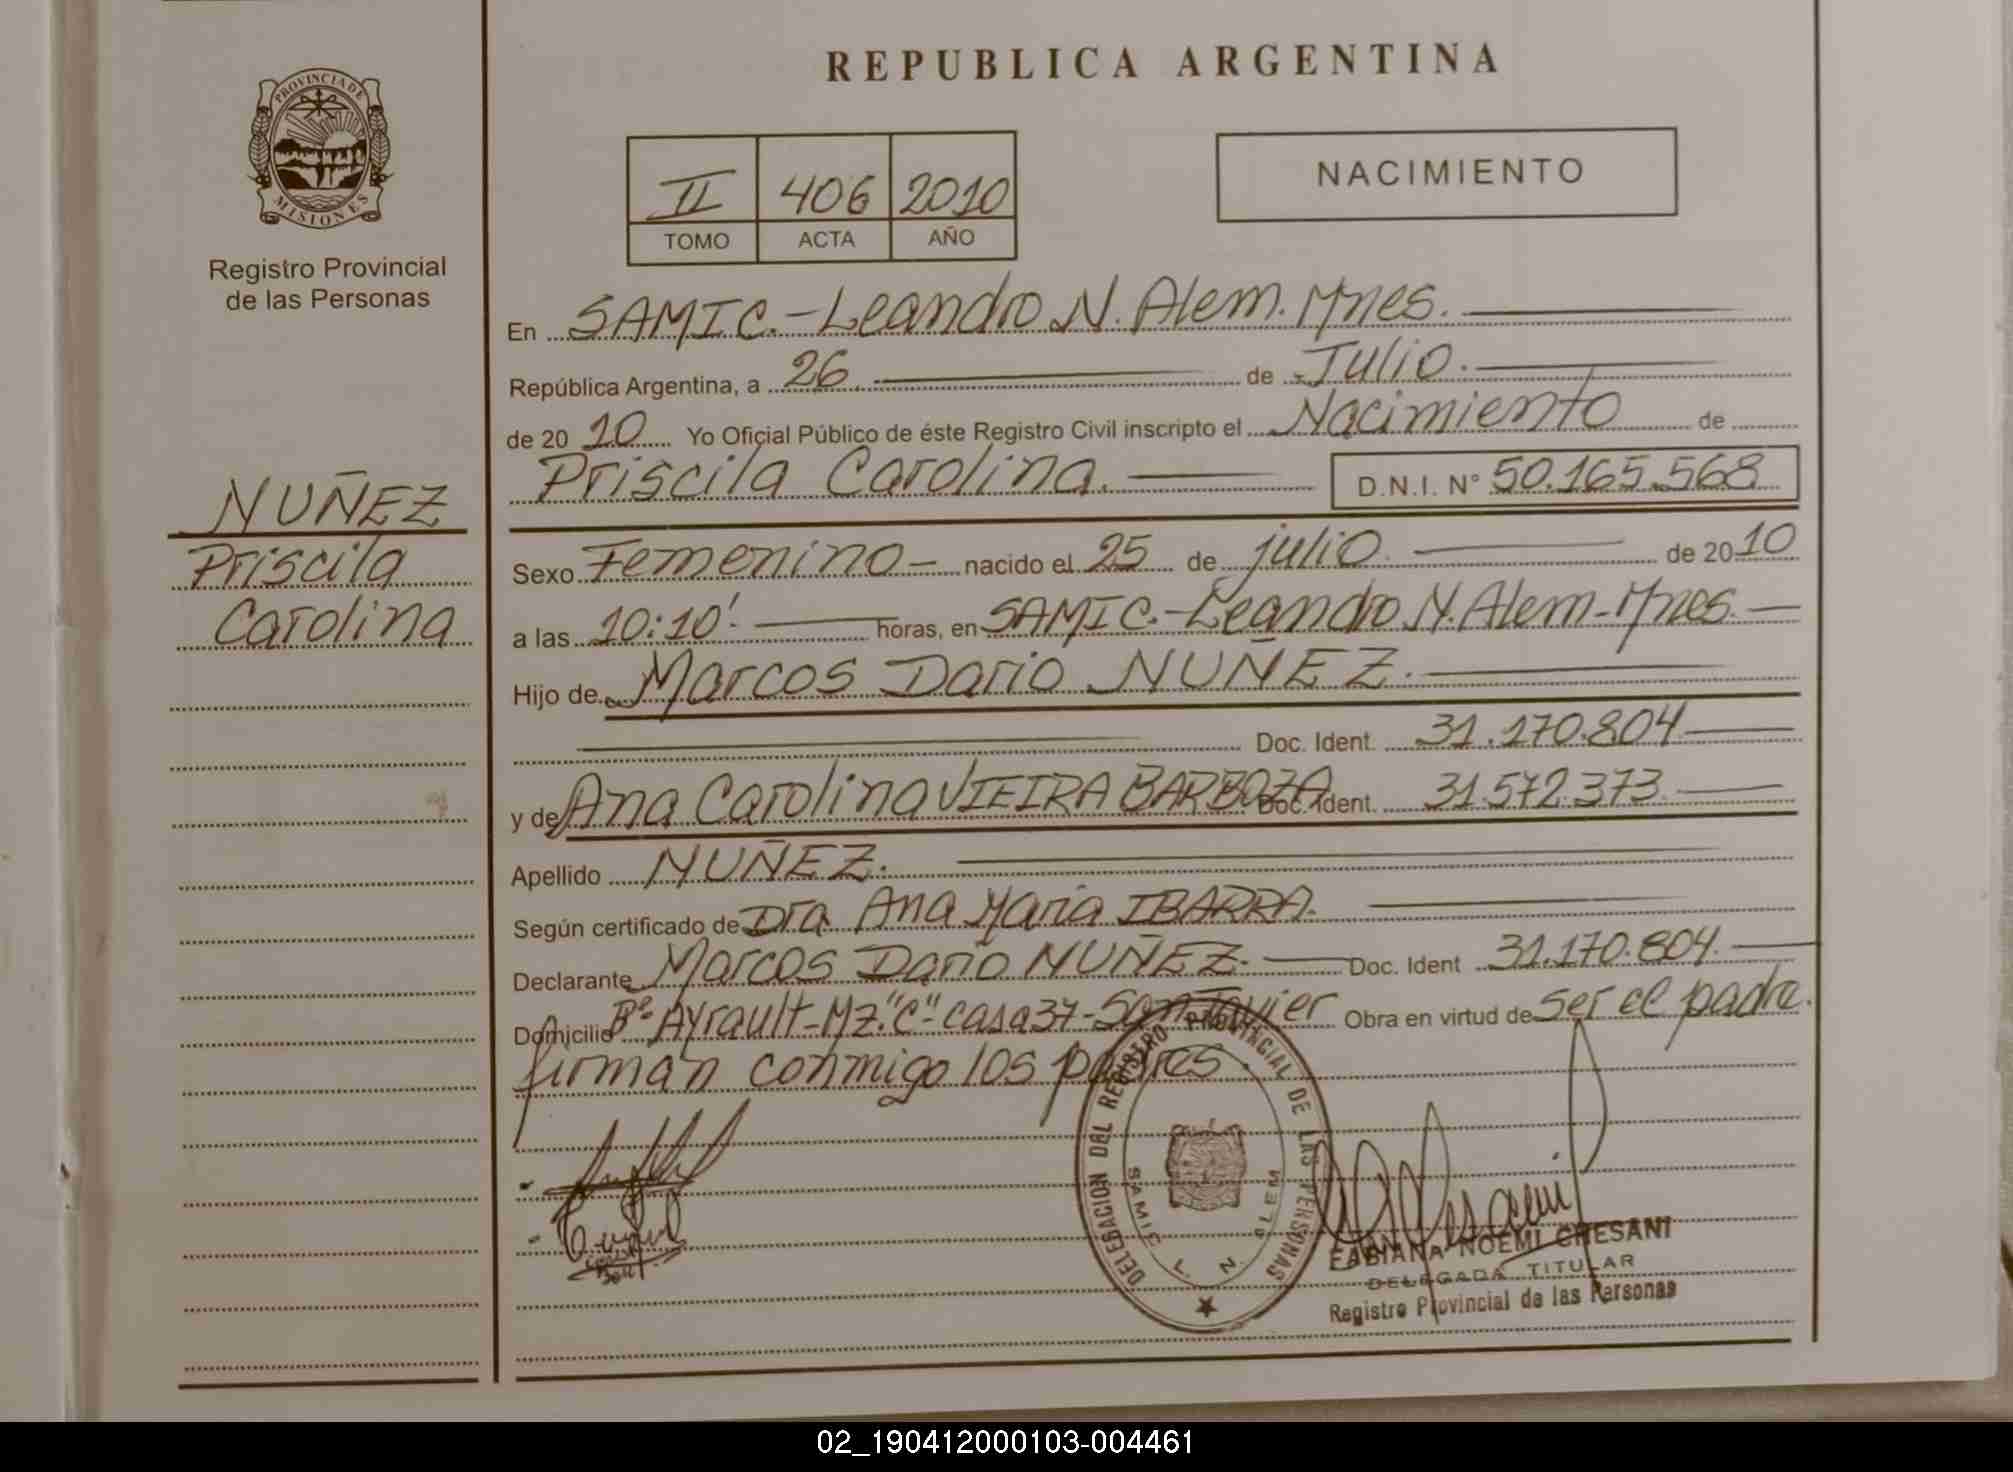 REPUBLICA ARGENTINA
PROVINCIA DE MISIONES
Registro Provincial
de las Personas
II 406 2010
TOMO ACTA AÑO
NACIMIENTO
NUÑEZ
Priscila
Carolina
En SAMIC.-Leandro N. Alem. Mnes.
República Argentina, a 26 de Julio.
de 2010 Yo Oficial Público de éste Registro Civil inscripto el Nacimiento de
Priscila Carolina. D.N.I. N° 50.165.568
Sexo Femenino - nacido el 25 de julio. de 2010
a las 10:10'. horas, en SAMIC.-Leandro N. Alem-Mnes.
Hijo de Marcos Dario NUÑEZ.
Doc. Ident. 31.170.804
y de Ana Carolina VIEIRA BARBOZA Doc. Ident. 31.572.373.
Apellido NUÑEZ.
Según certificado de Dra Ana Maria IBARRA.
Declarante Marcos Dario NUÑEZ. Doc. Ident 31.170.804.
Domicilio B°- Ayrault-Mz."C"-casa 37-San Javier Obra en virtud de ser el padre.
firman conmigo los padres.
DELEGACION DEL REGISTRO PROVINCIAL DE LAS PERSONAS
SAMIC. L. N. ALEM
FABIANA NOEMI CHESANI
DELEGADA TITULAR
Registro Provincial de las Personas
02_190412000103-004461